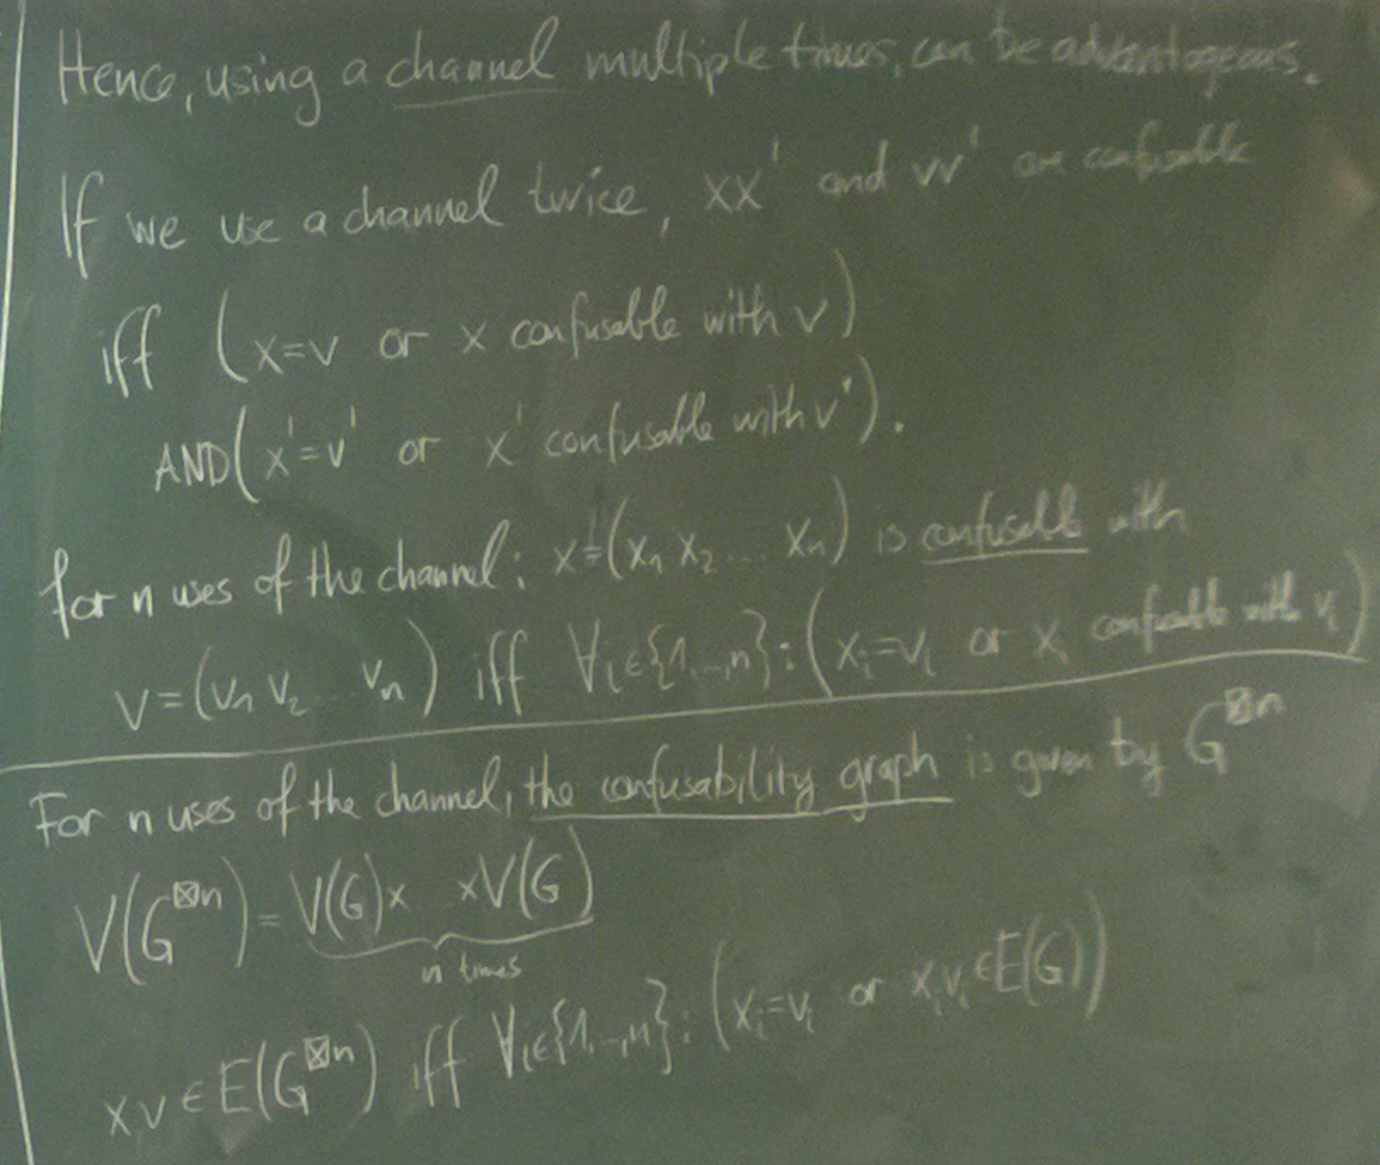 Hence, using a channel multiple times, can be advantageous.
If we use a channel twice, xx' and vv' are confusable
iff (x=v or x confusable with v)
AND(x'=v' or x' confusable with v').
for n uses of the channel: x=(x₁ x₂ ... xₙ) is confusable with
v=(v₁ v₂ ... vₙ) iff ∀i∈{1,...,n}: (xᵢ=vᵢ or xᵢ confusable with vᵢ)
For n uses of the channel, the confusability graph is given by G^⊠n
V(G^⊠n) = V(G)x xV(G)
n times
xv∈E(G^⊠n) iff ∀i∈{1,...,n}: (xᵢ=vᵢ or xᵢvᵢ∈E(G))